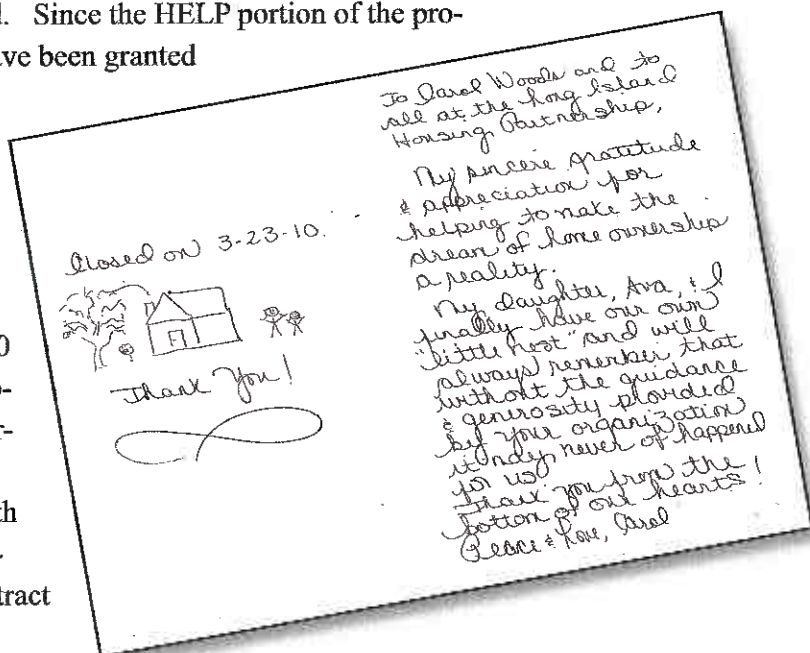 l. Since the HELP portion of the pro-
ve been granted
0
-
r-
th
-
tract
Closed on 3-23-10.
Thank You!
To Carol Woods and to
all at the Long Island
Housing Partnership,
My sincere gratitude
& appreciation for
helping to make the
dream of home ownership
a reality.
My daughter, Ava, & I
finally have our own
"little nest" and will
always remember that
without the guidance
& generosity provided
by your organization
it may never of happened
for us
Thank you from the
bottom of our hearts!
Peace & Love, Carol